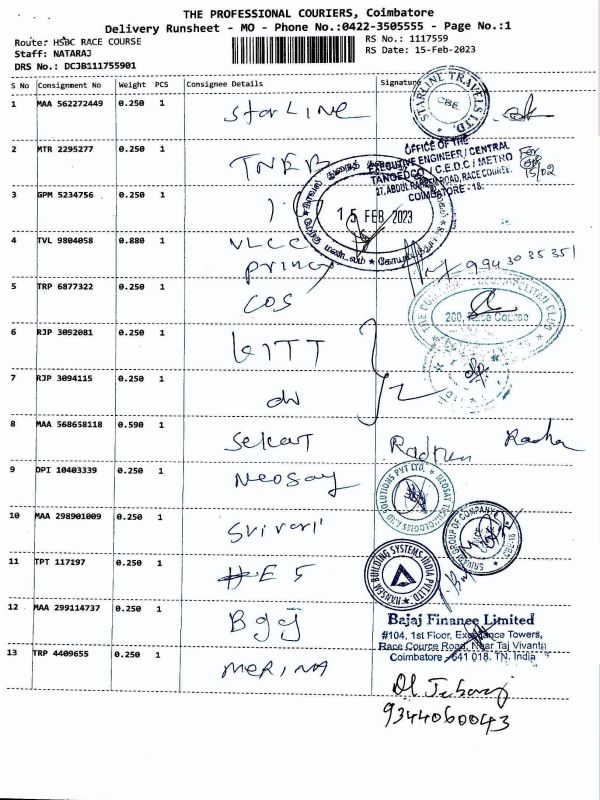 THE PROFESSIONAL COURIERS, Coimbatore
Delivery Runsheet - MO - Phone No.:0422-3505555 - Page No.:1
Route: HSBC RACE COURSE
RS No.: 1117559
Staff: NATARAJ
RS Date: 15-Feb-2023
DRS No.: DCJB111755901
S No Consignment No Weight PCS Consignee Details Signature
1 MAA 562272449 0.250 1 StarLINE
STARLINE TRAVELS LTD. CBE
2 MTR 2295277 0.250 1 TNEB
OFFICE OF THE
EXECUTIVE ENGINEER / CENTRAL
TANGEDCO / C.E.D.C / METRO
RACE COURSE,
COIMBATORE - 18.
15/02
3 GPM 5234756 0.250 1
15 FEB 2023
4 TVL 9804058 0.880 1 VLCC
994 30 35 351
5 TRP 6877322 0.250 1 COS
THE COSMOPOLITAN CLUB
Race Course
6 RJP 3092081 0.250 1 KITT
7 RJP 3094115 0.250 1
8 MAA 568658118 0.590 1
Radha
9 DPI 10403339 0.250 1 Neosay
NEOSAY TECHNOLOGIES AND SOLUTIONS PVT LTD.
10 MAA 298901009 0.250 1 Srivari
SRIVARI GROUP OF COMPANY
11 TPT 117197 0.250 1
BUILDING SYSTEMS INDIA PVT LTD
12 MAA 299114737 0.250 1
Bajaj Finance Limited
#104, 1st Floor, Towers,
Race Cource Road, Near Taj Vivanta
Coimbatore - 641 018. TN, India
13 TRP 4409655 0.250 1 MERINA
9344060043